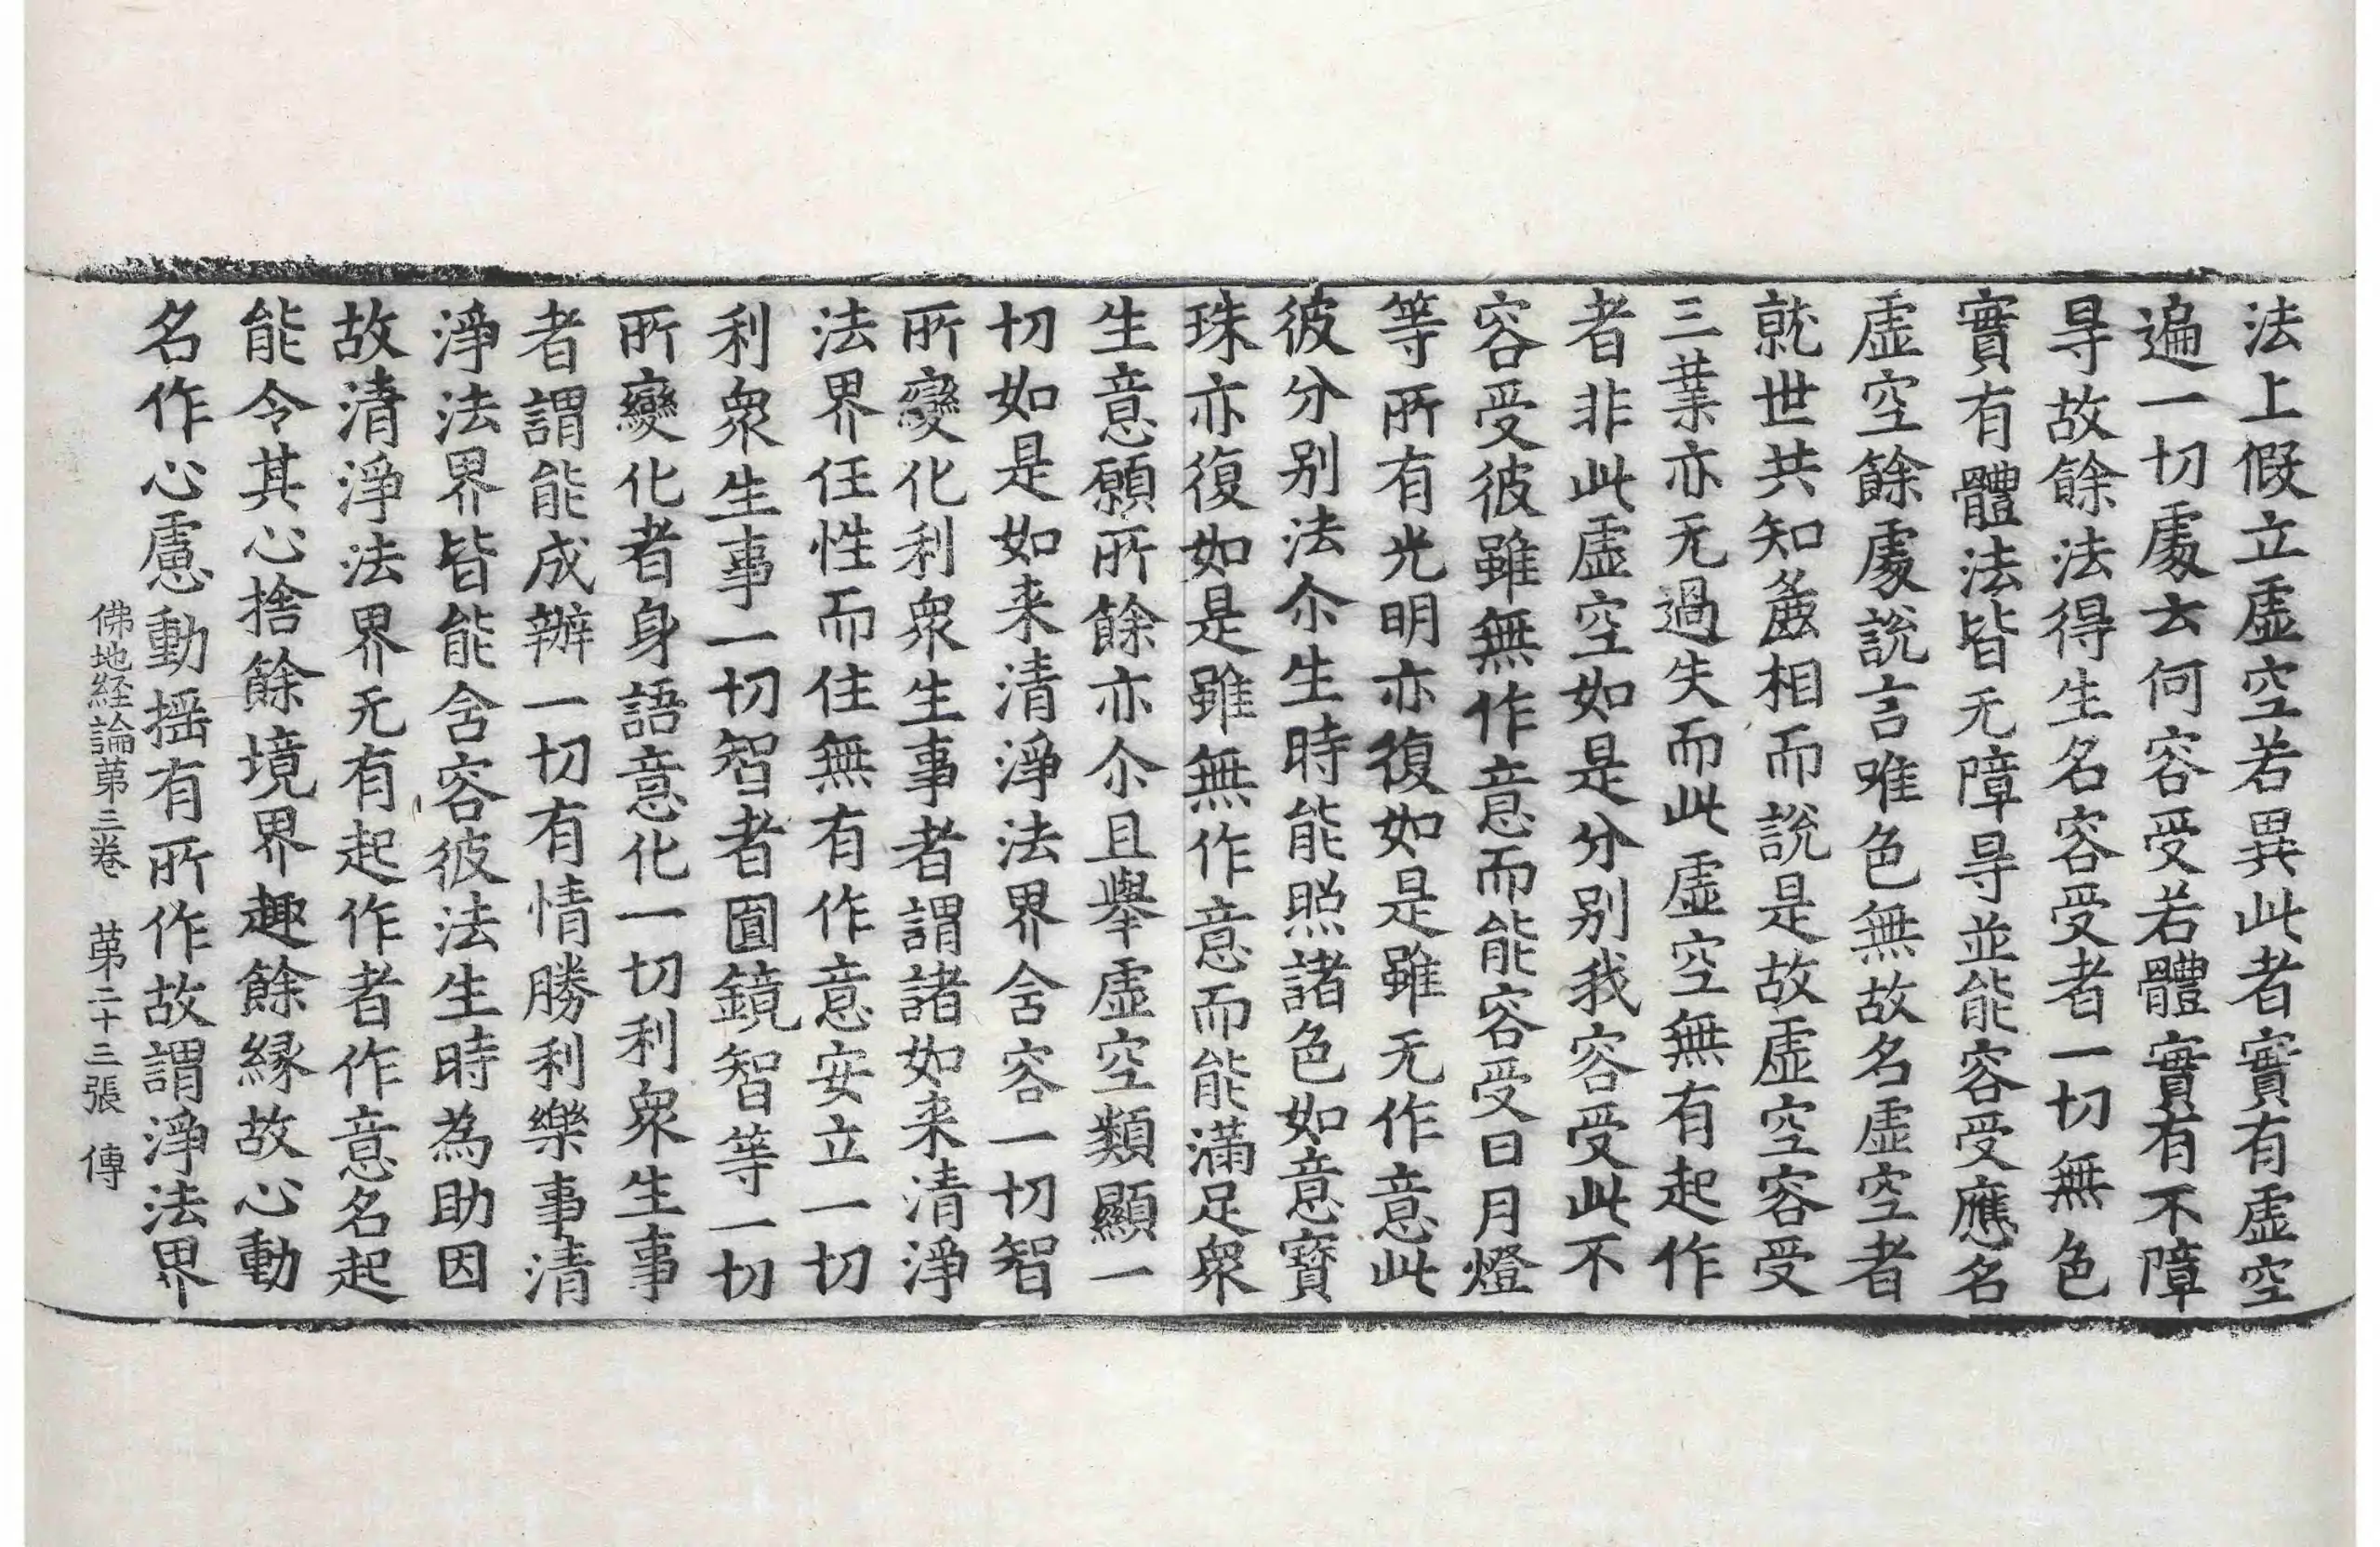 法上假立虛空若異此者實有虛空
遍一切處云何容受若體實有不障
㝵故餘法得生名容受者一切無色
實有體法皆无障㝵並能容受應名
虛空餘處說言唯色無故名虛空者
就世共知麁相而說是故虛空容受
三業亦无過失而此虛空無有起作
者非此虛空如是分别我容受此不
容受彼雖無作意而能容受日月燈
等所有光明亦復如是雖无作意此
彼分别法尒生時能照諸色如意寶
珠亦復如是雖無作意而能滿足衆
生意願所餘亦尒且舉虛空類顯一
切如是如来清淨法界含容一切智
所變化利衆生事者謂諸如来清淨
法界任性而住無有作意安立一切
利衆生事一切智者圎鏡智等一切
所變化者身語意化一切利衆生事
者謂能成辦一切有情勝利樂事清
淨法界皆能含容彼法生時為助因
故清淨法界无有起作者作意名起
能令其心捨餘境界趣餘縁故心動
名作心慮動摇有所作故謂淨法界
佛地経論苐三卷　苐二十三張　傳